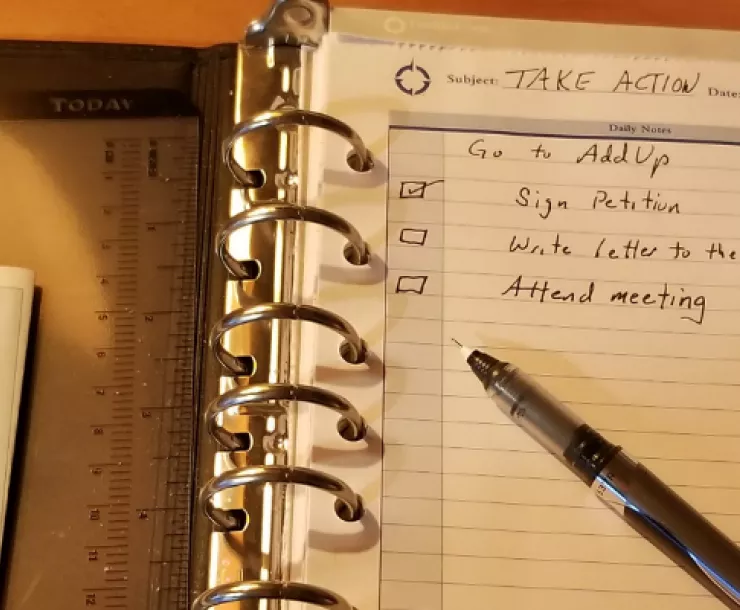 TODAY
Subject: TAKE ACTION Date:
Daily Notes
Go to AddUp
Sign Petition
Write letter to the
Attend meeting
4
5
6
7
8
9
10
11
12
2
3
4